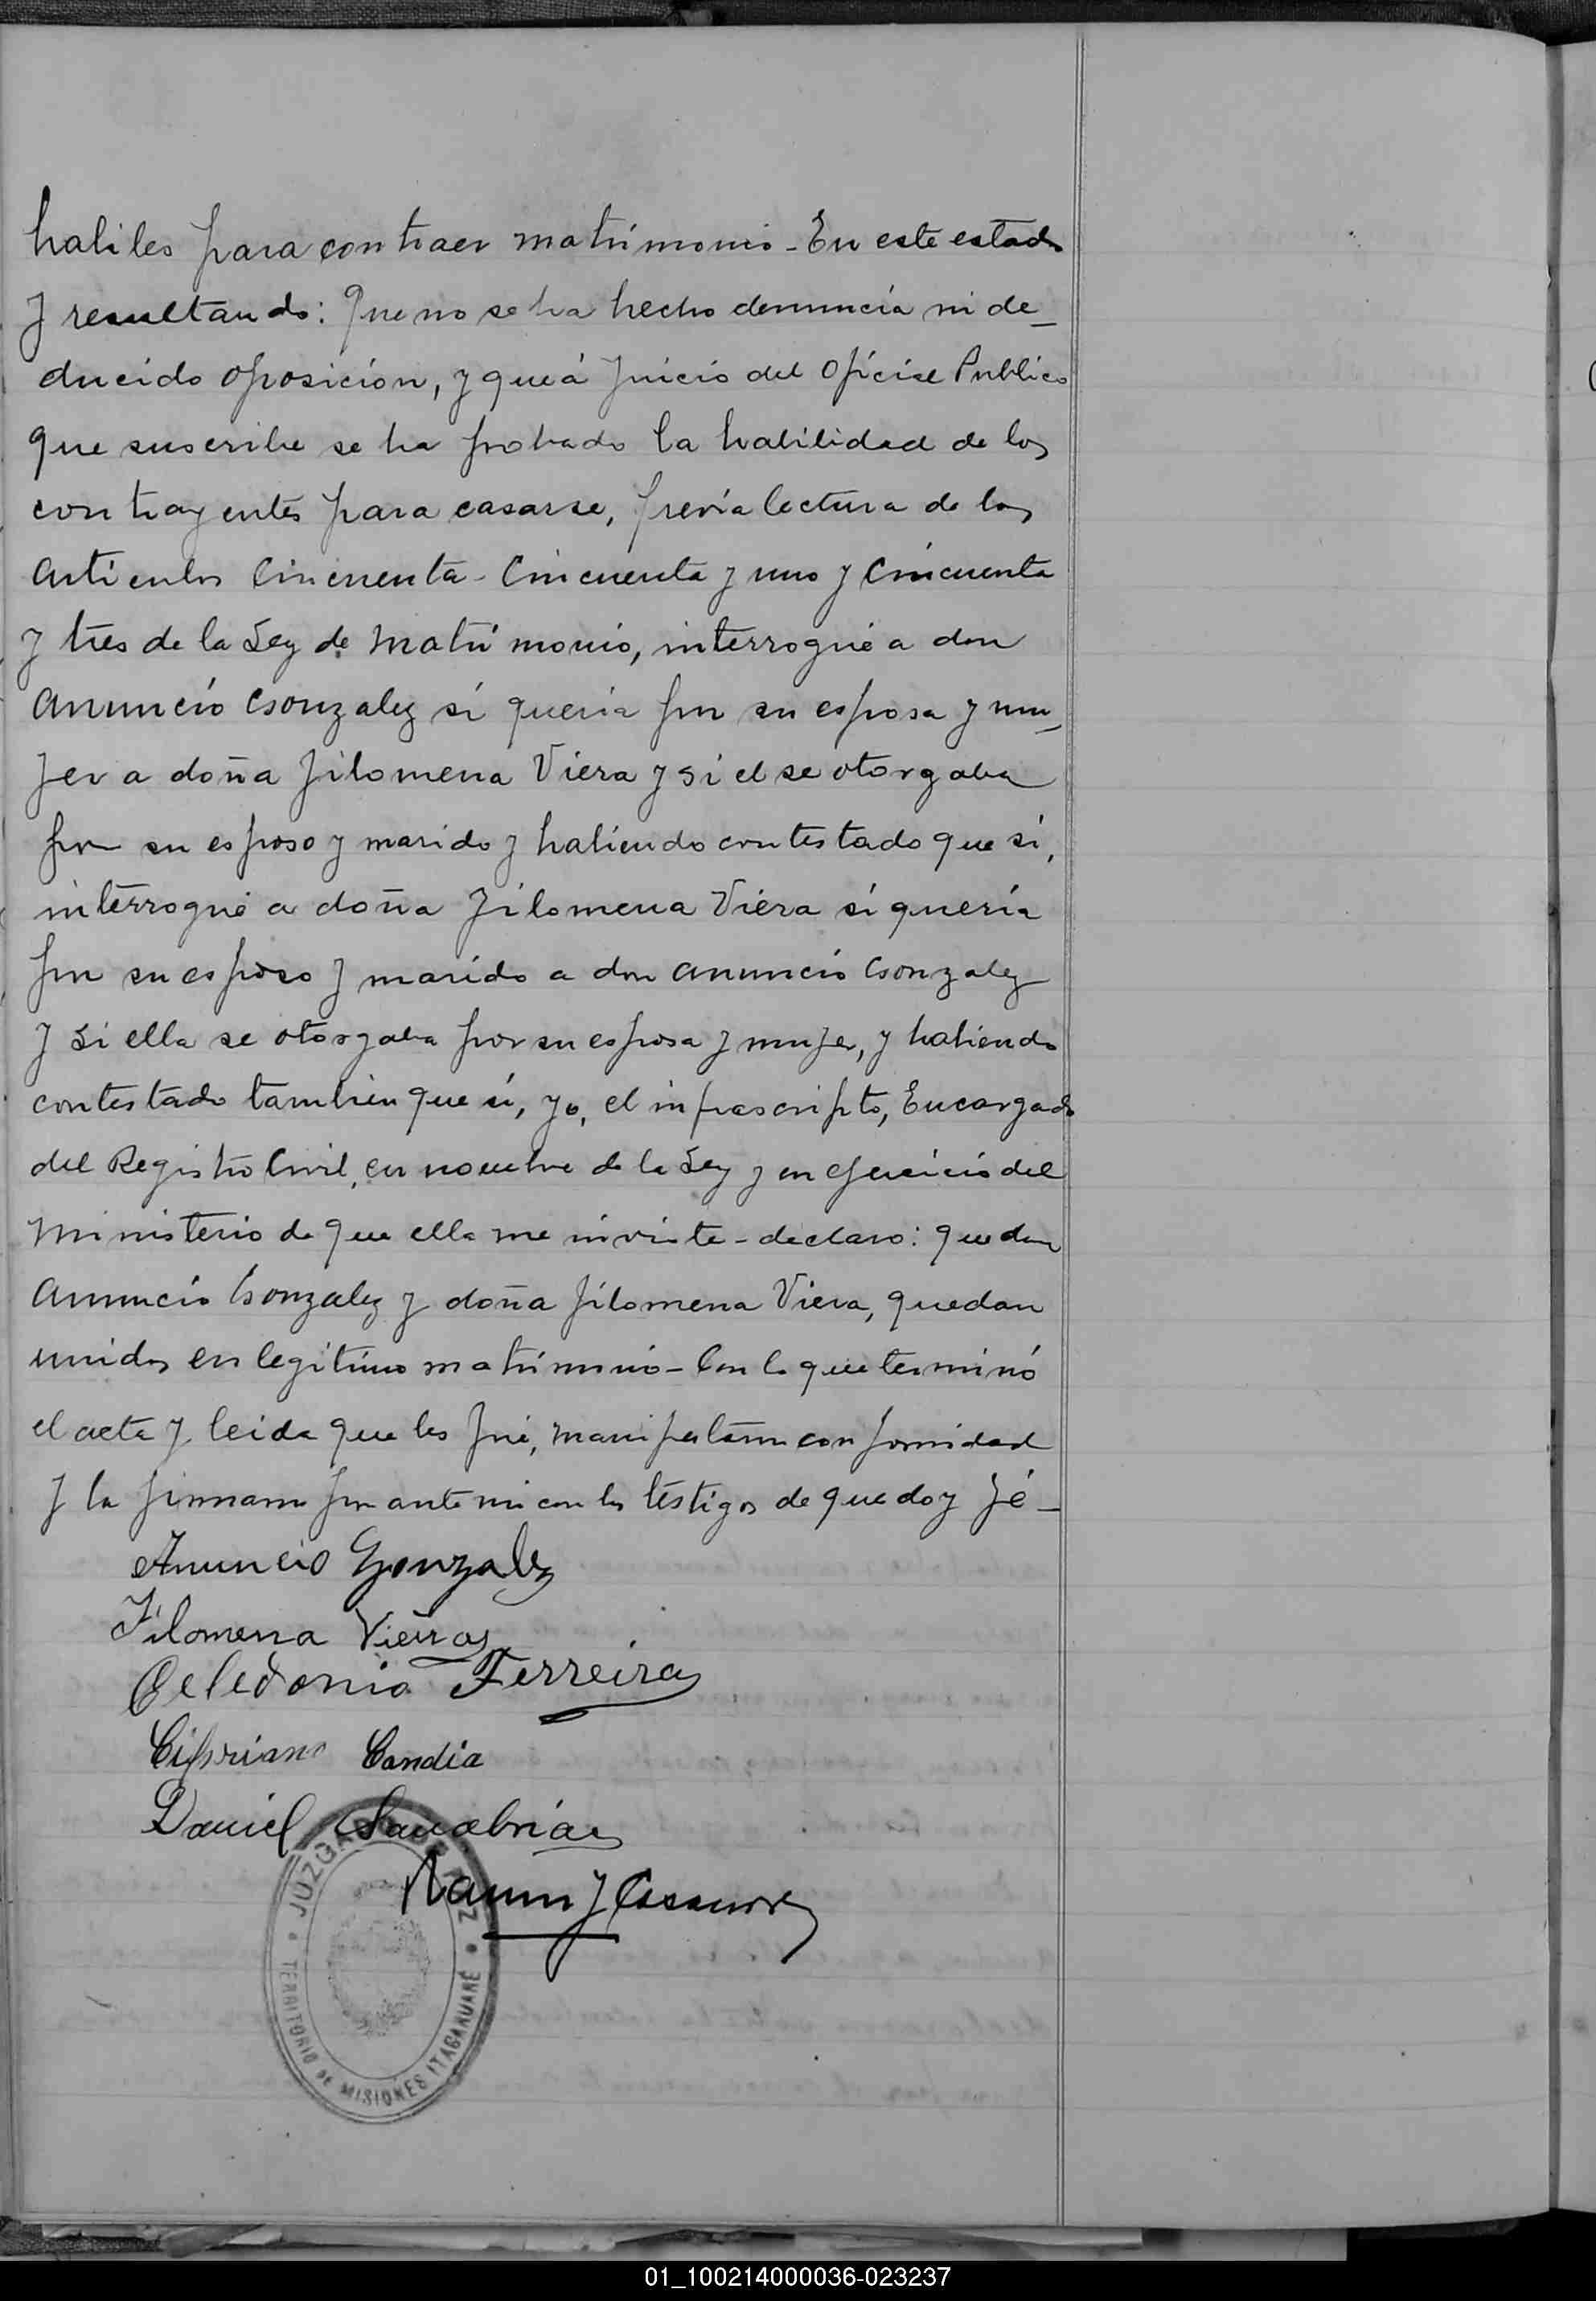 habiles para contraer matrimonio - En este estado
y resultando: Que no se ha hecho denuncia ni de_
ducido oposicion, y que á juicio del Oficial Publico
que suscribe se ha probado la habilidad de los
contrayentes para casarse, previa lectura de los
articulos Cincuenta - Cincuenta y uno y Cincuenta
y tres de la Ley de Matrimonio, interrogué a don
Anuncio Gonzalez si queria por su esposa y mu_
jer a doña Filomena Viera y si el se otorgaba
por su esposo y marido y habiendo contestado que si,
interrogué a doña Filomena Viera si quería
por su esposo y marido a don Anuncio Gonzalez
y si ella se otorgaba por su esposa y mujer, y habiendo
contestado tambien que si, yo, el infrascripto, Encargado
del Registro Civil, en nombre de la Ley y en ejercicio del
Ministerio de que ella me inviste - declaro: que don
Anuncio Gonzalez y doña Filomena Viera, quedan
unidos en legitimo matrimonio - Con lo que terminó
el acta y leida que les fué, manifestaron conformidad
y la firmaron por ante mi con los testigos de que doy fé -
Anuncio Gonzalez
Filomena Vieira
Celedonio Ferreira
Cipriano Candia
Daniel Sanabria
JUZGADO DE PAZ
TERRITORIO DE MISIONES ITACARUARÉ
01_100214000036-023237